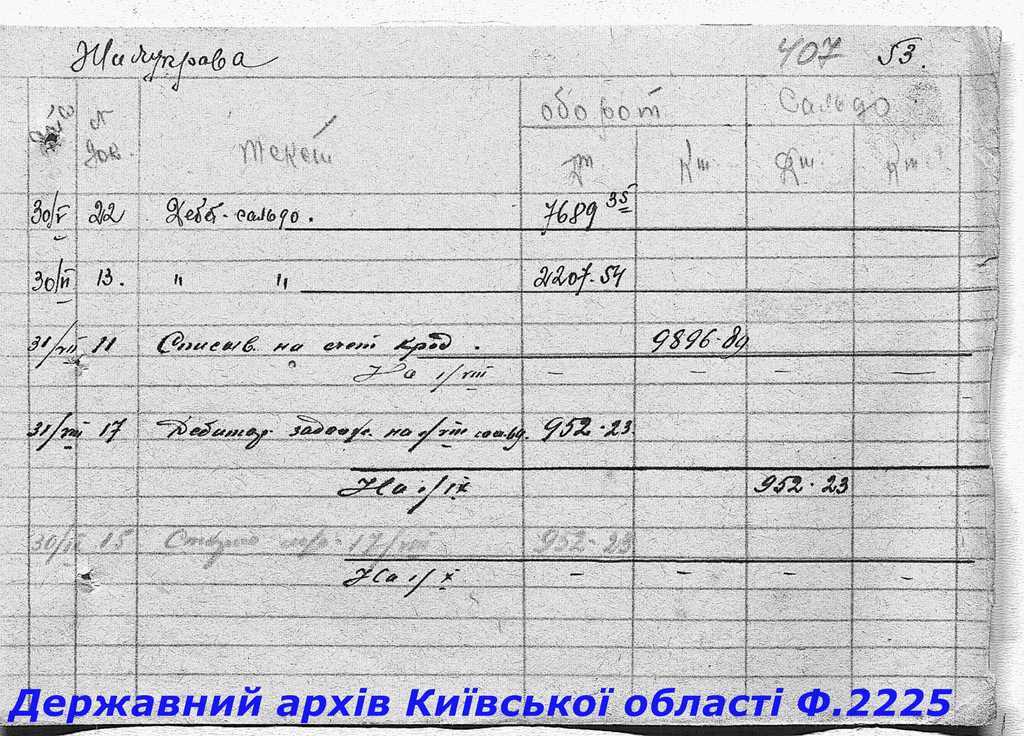 Жилуправа 407 53.
Дата N док. Текст оборот Сальдо
Дт Кт Дт Кт
30/V 22 Деб. сальдо. 7689 35
30/VI 13. " " 2207.54
31/VII 11 Списыв. на счет кред. 9896.89
На 1/VIII — — — —
31/VIII 17 Дебитор. задолж. на 1/VIII 952.23
На 1/IX 952.23
30/IX 15 Сторно 17/VIII 952.23
На 1/X — — — —
Державний архів Київської області Ф.2225